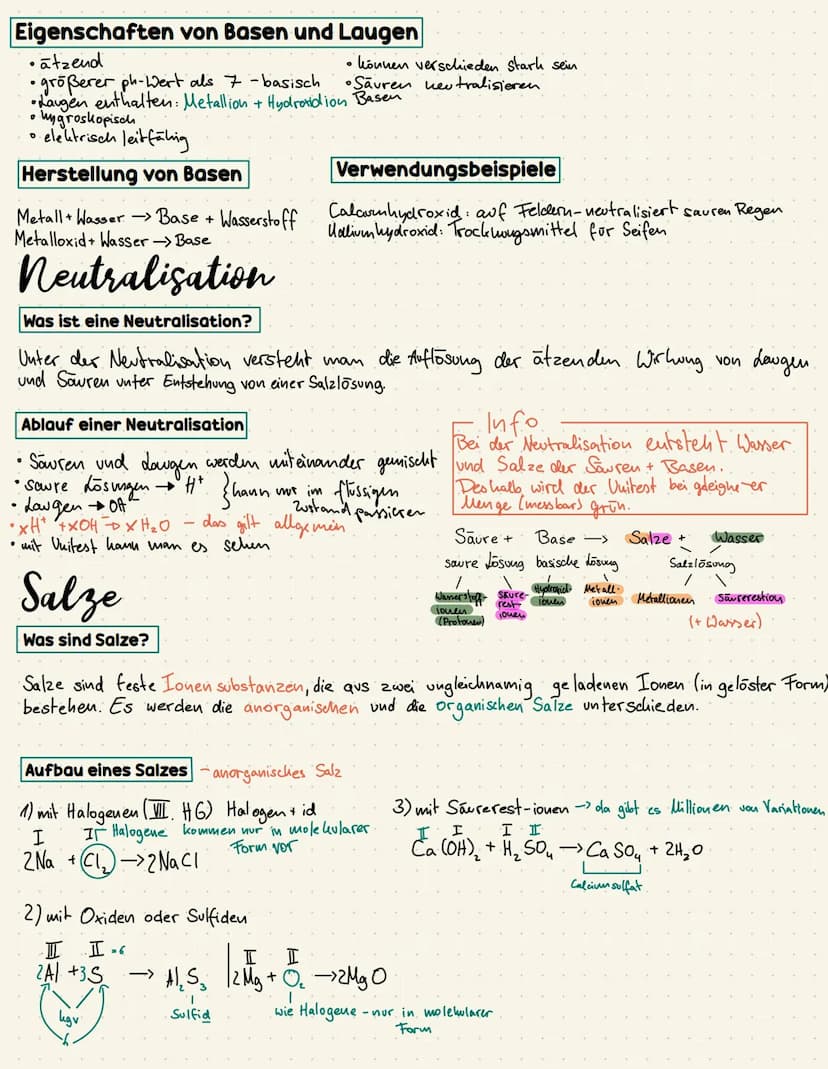 Eigenschaften von Basen und Laugen
• ätzend
• größerer ph-Wert als 7 - basisch
• Laugen enthalten: Metallion + Hydroxidion
• hygroskopisch
• elektrisch leitfähig
• können verschieden stark sein
• Säuren neutralisieren
Basen
Herstellung von Basen
Metall + Wasser → Base + Wasserstoff
Metalloxid + Wasser → Base
Verwendungsbeispiele
Calciumhydroxid: auf Feldern - neutralisiert sauren Regen
Kaliumhydroxid: Trocknungsmittel für Seifen
Neutralisation
Was ist eine Neutralisation?
Unter der Neutralisation versteht man die Auflösung der ätzenden Wirkung von Laugen
und Säuren unter Entstehung von einer Salzlösung.
Ablauf einer Neutralisation
• Säuren und Laugen werden miteinander gemischt
• saure Lösungen → H⁺
• Laugen → OH⁻
} kann nur im flüssigen
Zustand passieren
• xH⁺ + xOH⁻ → x H₂O - das gilt allgemein
• mit Unitest kann man es sehen
Info
Bei der Neutralisation entsteht Wasser
und Salze der Säuren + Basen.
Deshalb wird der Unitest bei gleicher
Menge (messbar) grün.
Säure + Base → Salze + Wasser
saure Lösung basische Lösung Salzlösung
Wasserstoff-
ionen
(Protonen)
Säure-
rest-
ionen
Hydroxid-
ionen
Metall-
ionen
Metallionen
Säurerestion
(+ Wasser)
Salze
Was sind Salze?
Salze sind feste Ionensubstanzen, die aus zwei ungleichnamig geladenen Ionen (in gelöster Form)
bestehen. Es werden die anorganischen und die organischen Salze unterschieden.
Aufbau eines Salzes - anorganisches Salz
1) mit Halogenen (VII. HG) Halogen + id
I I Halogene kommen nur in molekularer
Form vor
2Na + Cl₂ → 2NaCl
3) mit Säurerest-ionen → da gibt es Millionen von Variationen
II I I II
Ca(OH)₂ + H₂SO₄ → CaSO₄ + 2H₂O
Calciumsulfat
2) mit Oxiden oder Sulfiden
III II = 6
2Al + 3S → Al₂S₃
Sulfid
kgv
6
II II
2Mg + O₂ → 2MgO
wie Halogene - nur in molekularer
Form